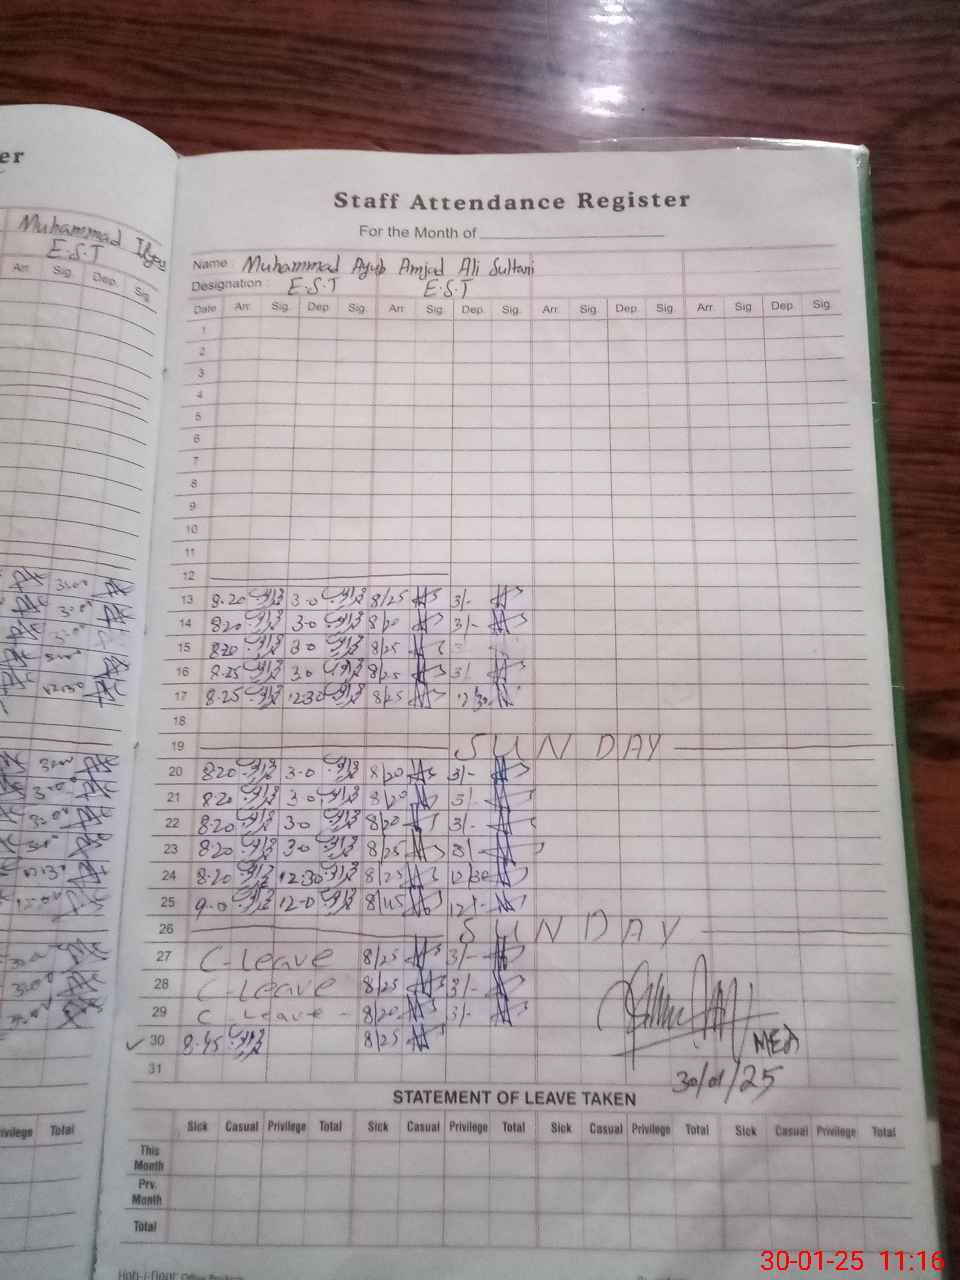 er
Muhammad Ilyas
E.S.T
Arr. Sig. Dep. Sig.
3:00
3:00
3:00
3:00
12:30
3:00
3:00
3:00
3:00
12:30
12:00
3:00
3:00
3:00
Privilege Total
Staff Attendance Register
For the Month of
Name : Muhammad Ayub Amjad Ali Sultani
Designation : E.S.T E.S.T
Date Arr. Sig. Dep. Sig. Arr. Sig. Dep. Sig. Arr. Sig. Dep. Sig. Arr. Sig. Dep. Sig.
1
2
3
4
5
6
7
8
9
10
11
12
13 8.20 3-0 8/25 3/-
14 8.20 3-0 8/20 3/-
15 8.20 3-0 8/25 3
16 8.25 3.0 8/25 3/
17 8.25 12.30 8/25 12/30
18
19 SUNDAY
20 8.20 3-0 8/20 3/-
21 8.20 3-0 8/20 3/-
22 8.20 3-0 8/20 3/-
23 8.20 3-0 8/25 3/-
24 8.20 12.30 8/25 12/30
25 9.0 12.0 8/45 12/-
26 SUNDAY
27 C-Leave 8/25 3/-
28 C-Leave 8/25 3/-
29 C-Leave - 8/20 3/-
30 8.45 8/25
MEA
31
30/01/25
STATEMENT OF LEAVE TAKEN
Sick Casual Privilege Total Sick Casual Privilege Total Sick Casual Privilege Total Sick Casual Privilege Total
This Month
Prv. Month
Total
30-01-25 11:16